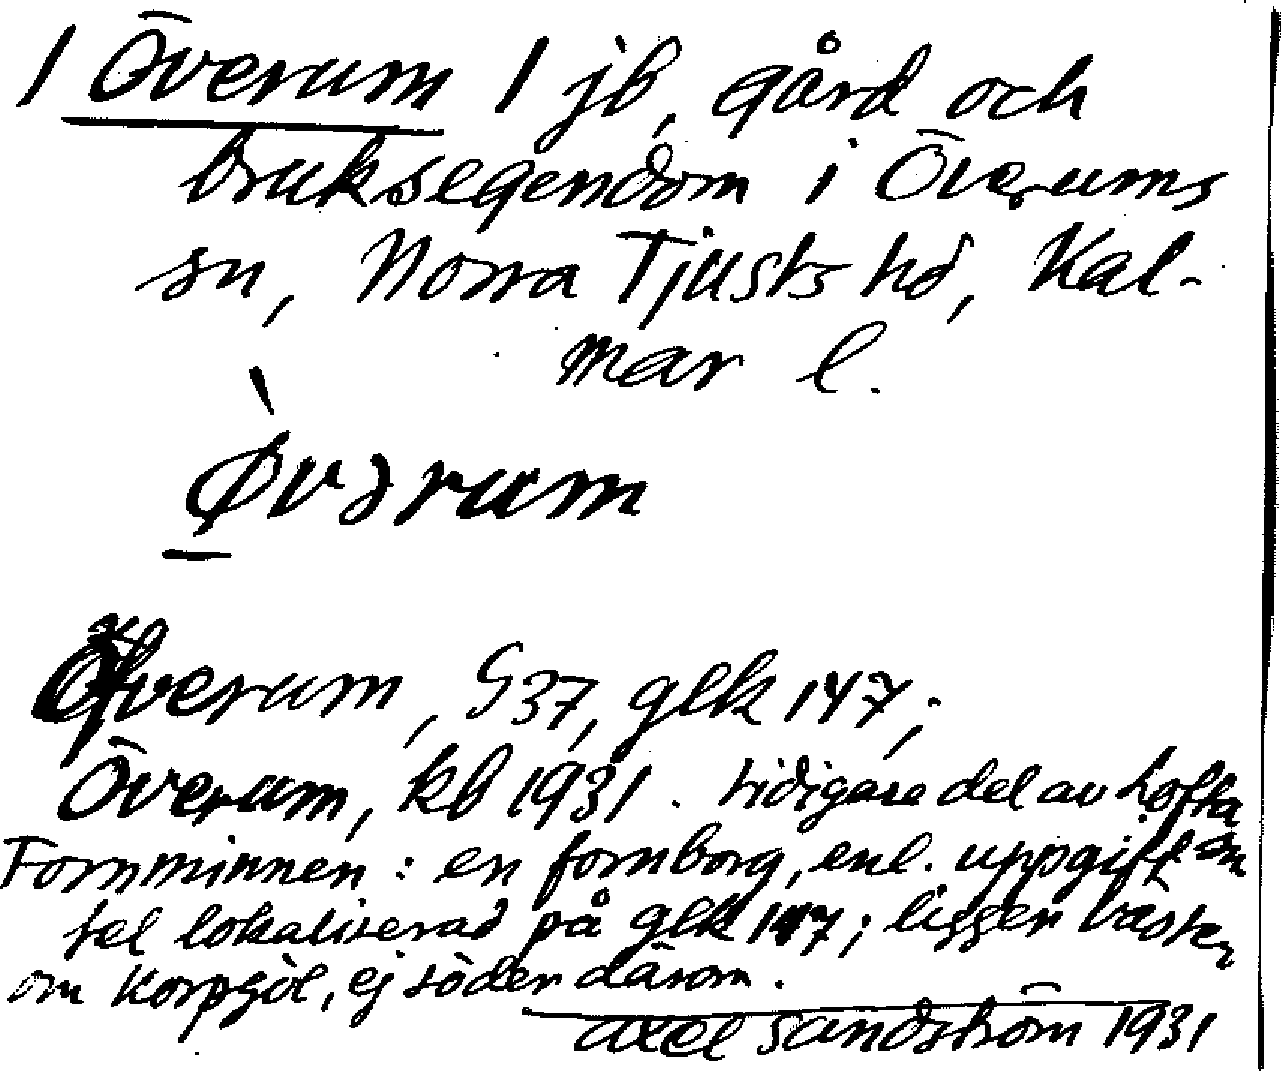 / Överum / jb, gård och
bruksegendom i Överums
sn, Norra Tjusts hd, Kal-
mar l.
`øvərum
Överum, S37, glk 147;
Överum, kb 1931. tidigare del av Lofta
Fornminnen: en fornborg, enl. uppgift sn
fel lokaliserad på glk 147; ligger väster
om Korpgöl, ej söder därom.
Axel Sandström 1931